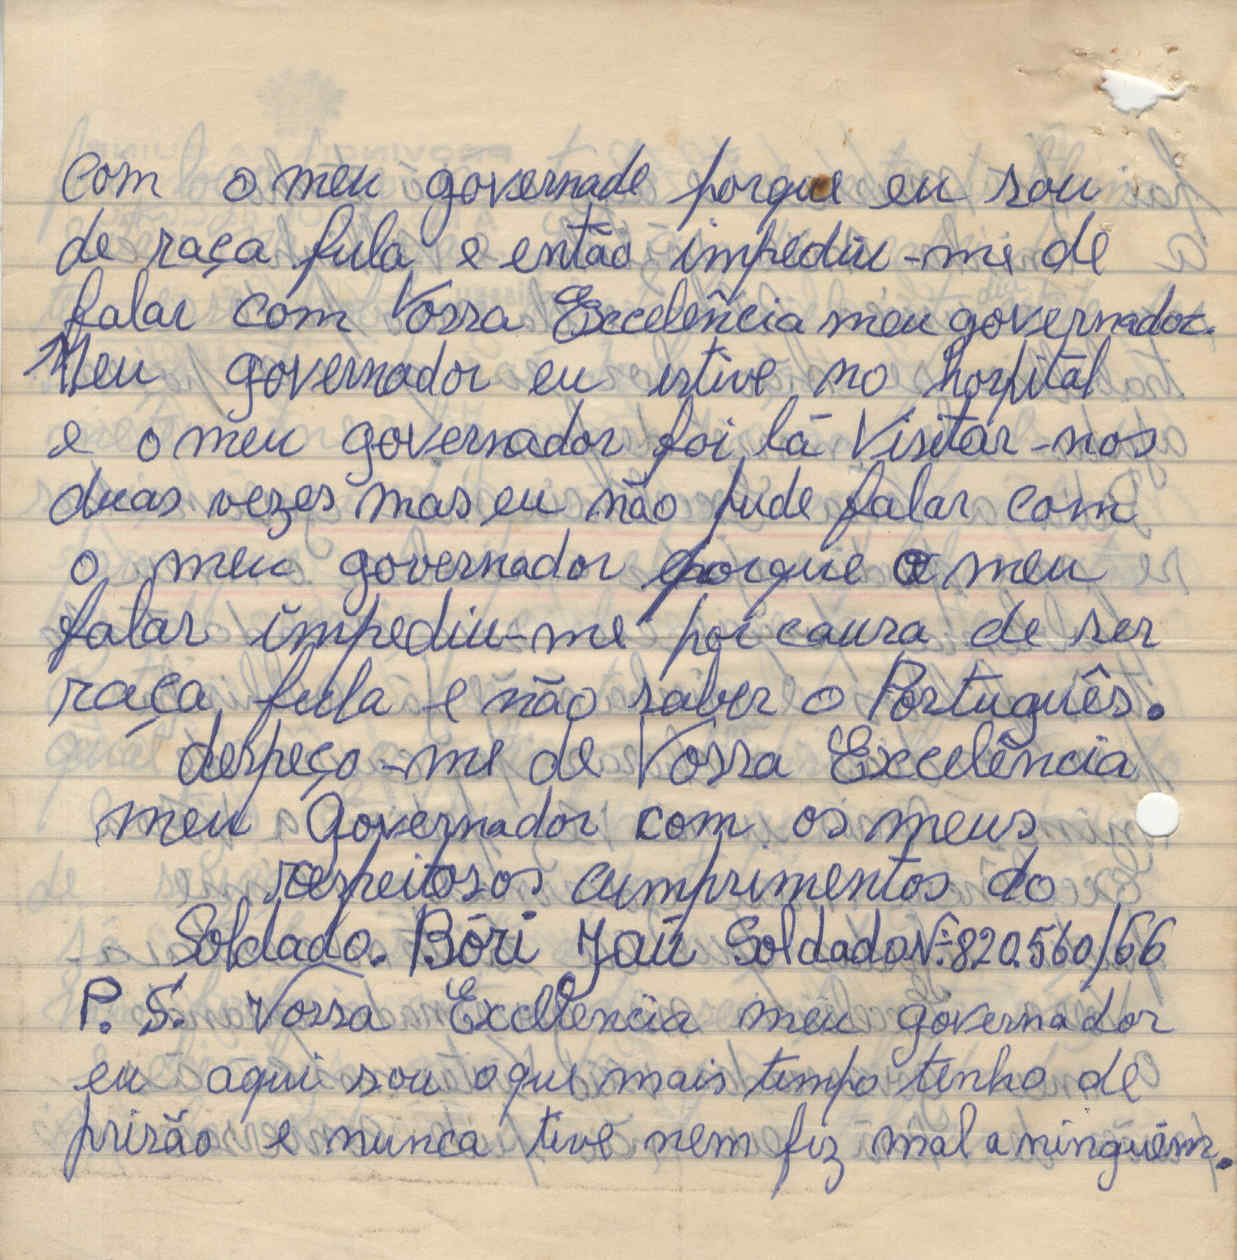 com o meu governade porque eu sou
de raça fula e então impediu-me de
falar com Vossa Excelência meu governador.
Meu governador eu estive no hospital
e o meu governador foi lá Visitar-nos
duas vezes mas eu não pude falar com
o meu governador porque o meu
falar impediu-me por causa de ser
raça fula e não saber o Português.
despeço-me de Vossa Excelência
meu Governador com os meus
respeitosos cumprimentos do
Soldado. Bóri Jaú Soldado Nº 820.560/66
P.S. Vossa Excelência meu governador
eu aqui sou o que mais tempo tenho de
prisão e nunca tive nem fiz mal a ninguém.